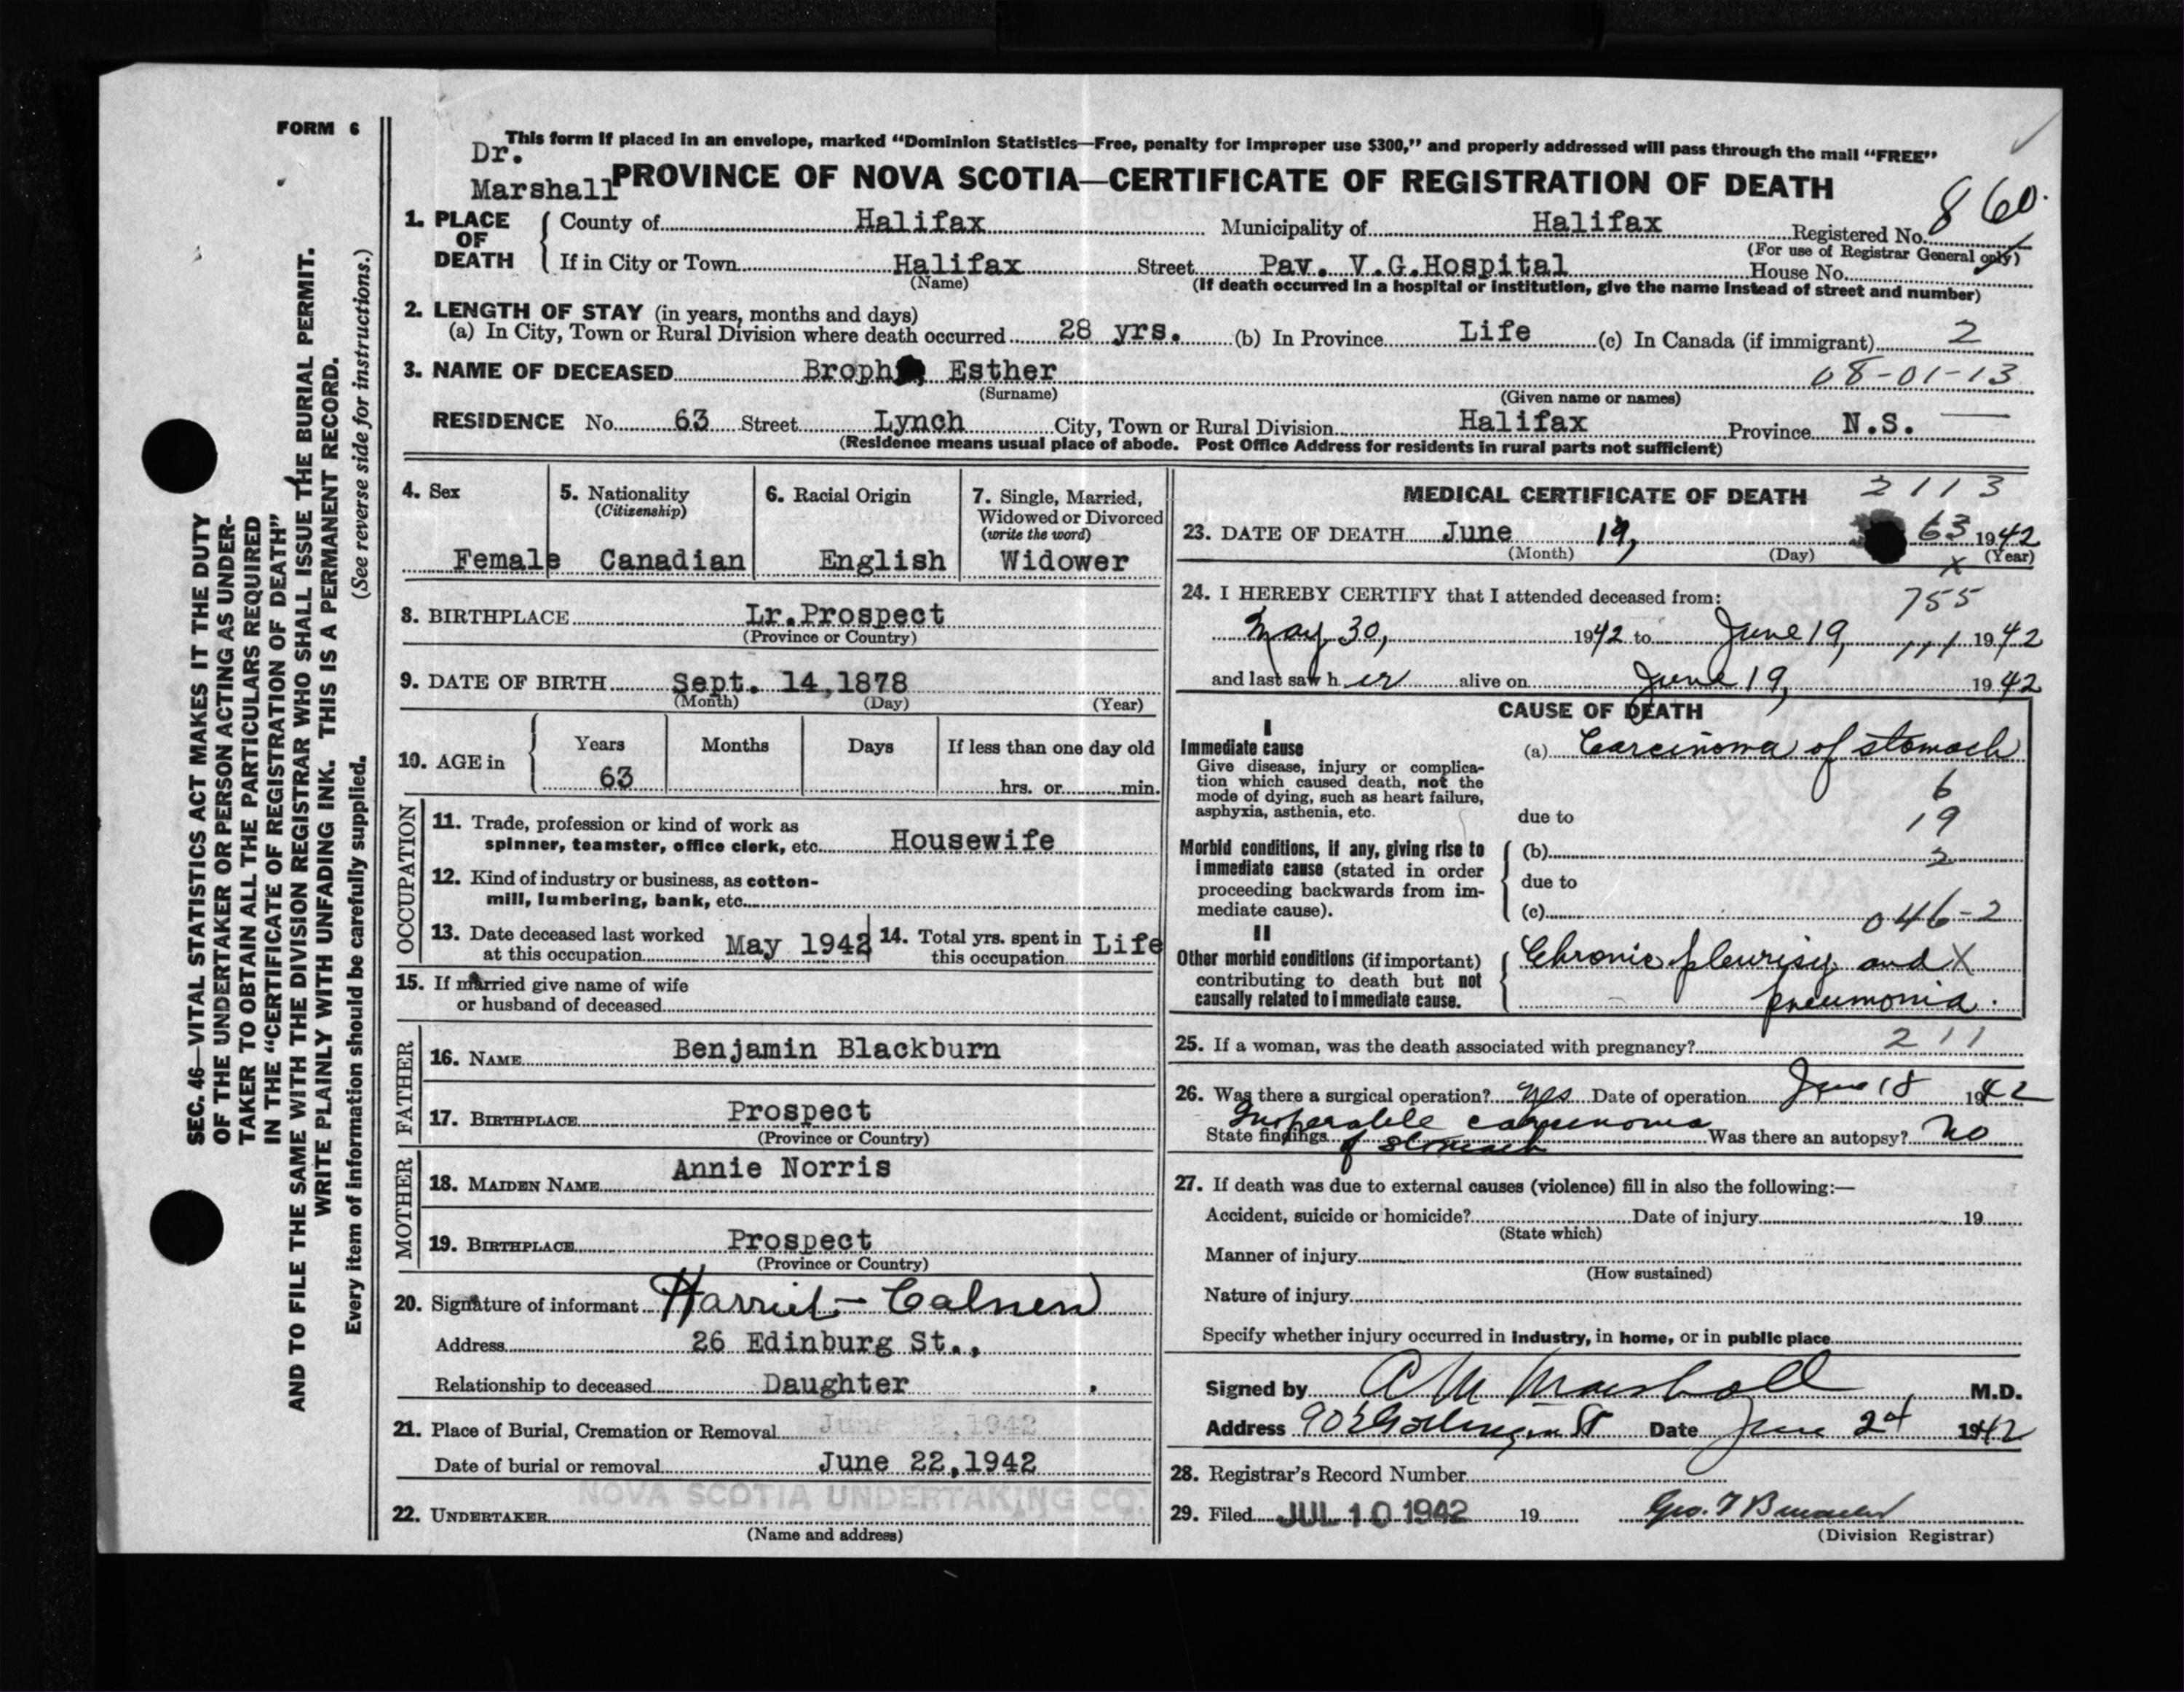 FORM 6
This form if placed in an envelope, marked "Dominion Statistics—Free, penalty for improper use $300," and properly addressed will pass through the mail "FREE"
Dr.
Marshall
PROVINCE OF NOVA SCOTIA—CERTIFICATE OF REGISTRATION OF DEATH
860.
1. PLACE OF DEATH
County of Halifax Municipality of Halifax Registered No.
(For use of Registrar General only)
If in City or Town Halifax Street Pav. V.G.Hospital House No.
(Name) (If death occurred in a hospital or institution, give the name instead of street and number)
2. LENGTH OF STAY (in years, months and days)
(a) In City, Town or Rural Division where death occurred 28 yrs. (b) In Province Life (c) In Canada (if immigrant) 2
3. NAME OF DECEASED Esther 08-01-13
(Surname) (Given name or names)
RESIDENCE No. 63 Street Lynch City, Town or Rural Division Halifax Province N.S.
(Residence means usual place of abode. Post Office Address for residents in rural parts not sufficient)
4. Sex
Female
5. Nationality
(Citizenship)
Canadian
6. Racial Origin
English
7. Single, Married,
Widowed or Divorced
(write the word)
Widower
8. BIRTHPLACE Lr.Prospect
(Province or Country)
9. DATE OF BIRTH Sept. 14,1878
(Month) (Day) (Year)
10. AGE in
Years Months Days If less than one day old
63 hrs. or min.
OCCUPATION
11. Trade, profession or kind of work as
spinner, teamster, office clerk, etc. Housewife
12. Kind of industry or business, as cotton-
mill, lumbering, bank, etc.
13. Date deceased last worked
at this occupation May 1942
14. Total yrs. spent in
this occupation Life
15. If married give name of wife
or husband of deceased
FATHER
16. NAME Benjamin Blackburn
17. BIRTHPLACE Prospect
(Province or Country)
MOTHER
18. MAIDEN NAME Annie Norris
19. BIRTHPLACE Prospect
(Province or Country)
20. Signature of informant Harriet - Calnen
Address 26 Edinburg St.,
Relationship to deceased Daughter
21. Place of Burial, Cremation or Removal June 22,1942
Date of burial or removal June 22,1942
NOVA SCOTIA UNDERTAKING CO.
22. UNDERTAKER
(Name and address)
MEDICAL CERTIFICATE OF DEATH 2113
23. DATE OF DEATH June 19, 63 1942
(Month) (Day) (Year)
x
24. I HEREBY CERTIFY that I attended deceased from:
755
May 30, 1942 to June 19, 1942
and last saw her alive on June 19, 1942
CAUSE OF DEATH
I
Immediate cause
Give disease, injury or complica-
tion which caused death, not the
mode of dying, such as heart failure,
asphyxia, asthenia, etc.
(a) Carcinoma of stomach
6
due to 19
Morbid conditions, if any, giving rise to
immediate cause (stated in order
proceeding backwards from im-
mediate cause).
(b) 2
due to
(c) 046-2
II
Other morbid conditions (if important)
contributing to death but not
causally related to immediate cause.
Chronic pleurisy and X
pneumonia.
25. If a woman, was the death associated with pregnancy? 211
26. Was there a surgical operation? yes Date of operation June 18 1942
Inoperable carcinoma
State findings of stomach Was there an autopsy? no
27. If death was due to external causes (violence) fill in also the following:—
Accident, suicide or homicide? Date of injury 19
(State which)
Manner of injury
(How sustained)
Nature of injury
Specify whether injury occurred in industry, in home, or in public place
Signed by A M Marshall M.D.
Address Date June 24 1942
28. Registrar's Record Number
29. Filed JUL 10 1942 19
(Division Registrar)
SEC. 46—VITAL STATISTICS ACT MAKES IT THE DUTY
OF THE UNDERTAKER OR PERSON ACTING AS UNDER-
TAKER TO OBTAIN ALL THE PARTICULARS REQUIRED
IN THE "CERTIFICATE OF REGISTRATION OF DEATH"
AND TO FILE THE SAME WITH THE DIVISION REGISTRAR WHO SHALL ISSUE THE BURIAL PERMIT.
WRITE PLAINLY WITH UNFADING INK. THIS IS A PERMANENT RECORD.
Every item of information should be carefully supplied. (See reverse side for instructions.)